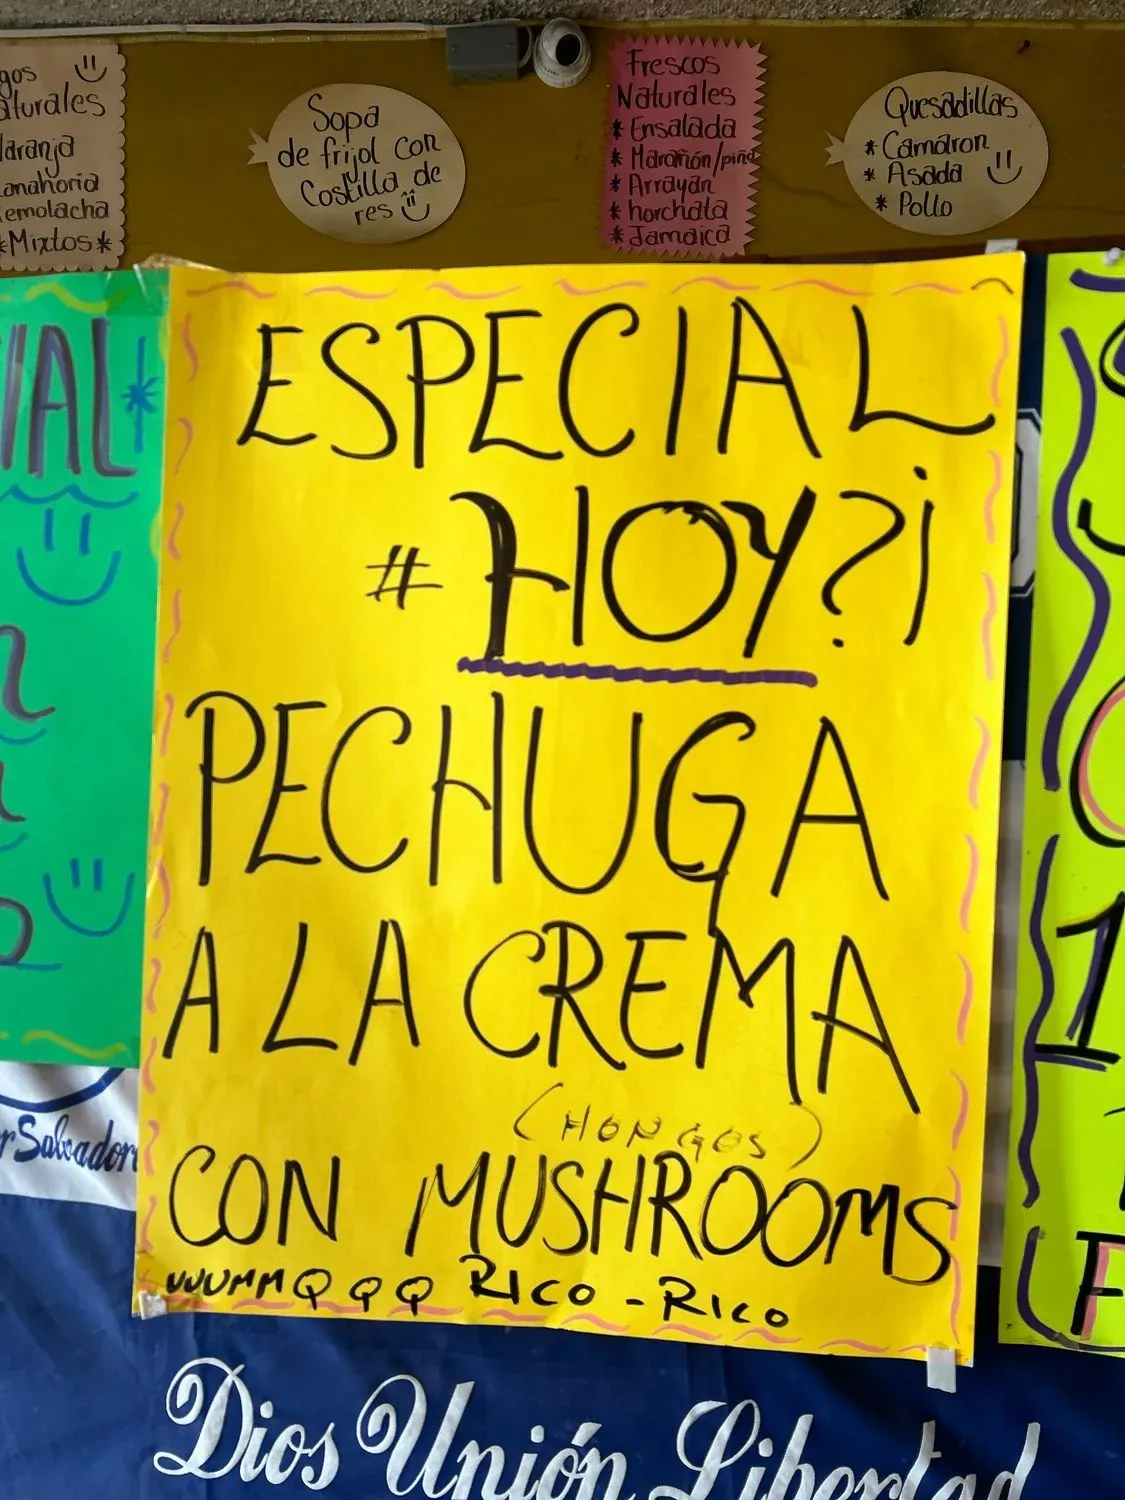 Naranja
*Mixtos*
Sopa
de frijol con
Costilla de
res
Frescos
Naturales
* Ensalada
* Marañón/piña
* Arrayán
* horchata
* Jamaica
Quesadillas
* Camaron
* Asada
* Pollo
ESPECIAL
# HOY?¡
PECHUGA
A LA CREMA
(HONGOS)
CON MUSHROOMS
UUUMMQQQ RICO - RICO
Dios Unión Libertad